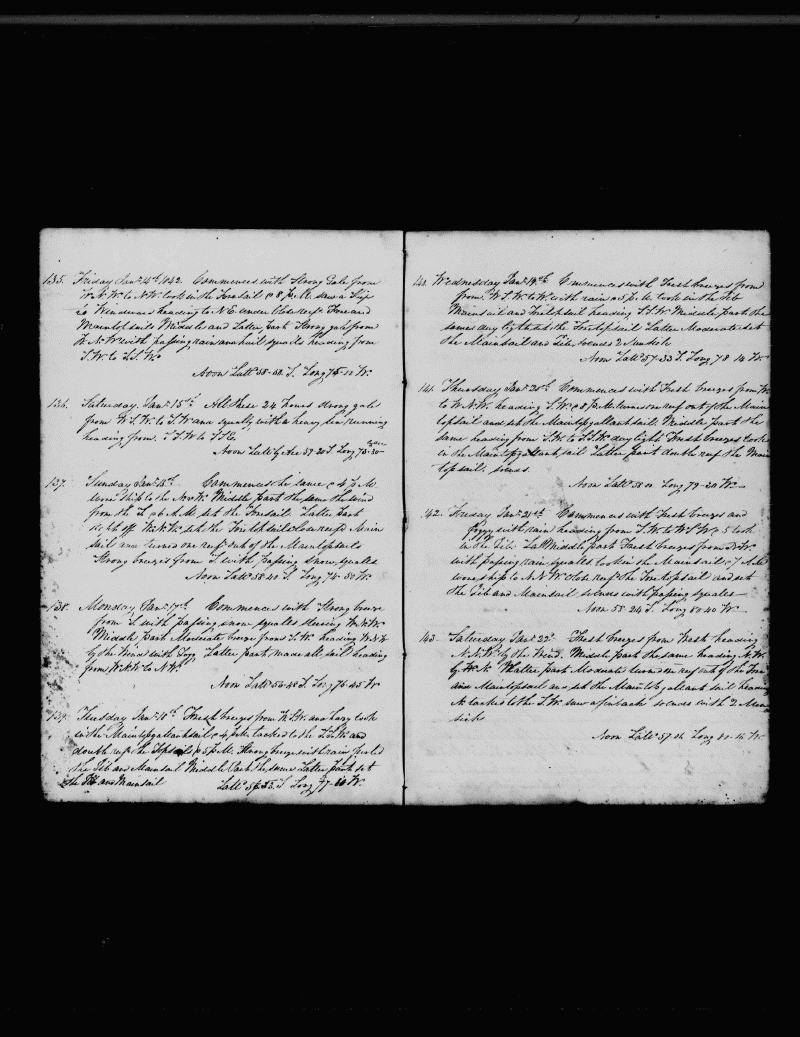 135. Friday Jany 14th 1842. Commences with Strong Gale from
W.N.W. to N.W. took in the Foresail @ 8 P.M. saw a Ship
to Windward heading to N.E. under Close reeft Fore and
Maintopsails Middle and Latter part Strong gale from
N.W with passing rain and hail squalls heading from
S.W. to S.S.W.
Noon Latt 58-52 S. Long 75-10 W.
136. Saturday. Jany 15th All these 24 hours strong gale
from W.S.W. to S.W and squally with a heavy sea running
heading from
Noon Latt by Acc 57-20 S. Long 75-30
137. Sunday Jany 16th Commences the same @ 4 P.M.
wore Ship to the Middle part the same the wind
from the S. @ 6 A.M set the Foresail. Latter part
kept off W.N.W. set the Foretopsail close reefd Main
sail and turned one reef out of the Maintopsails
Strong breezes from S. with passing Snow squalls
Noon Latt 58-40 S. Long 74-50 W.
138. Monday Jany 17th Commences with Strong breeze
from S. with passing snow squalls steering W.N.W.
Middle part Moderate breeze from S.W. heading W.N.W
by the Wind with Fogg Latter part made all sail heading
from W.N.W to N.W.
Noon Latt 56-48 S. Long 76-45 W
139. Tuesday Jany 18th Fresh breezes from W.S.W. and hazy took
in the Maintopgallantsail @ 4 P.M. tacked to the S.S.W. and
double reeft the Topsails @ 5 P.M. Strong breeze with rain furled
the Jib and Mainsail Middle Part the same Latter part set
the Jib and Mainsail Latt 57-53. S Long 77-10 W.
140. Wednesday Jany 19th Commences with Fresh breezes from
from W.S.W. to W. with rain @ 5 P.M. took in the Jib
Mainsail and heading S.S.W. Middle part the
same day light set the Foretopsail Latter Moderate set
the Mainsail and Jib. So ends 2 Men sick
Noon Latt 57-53 S. Long 78-10 W.
141. Thursday Jany 20th Commences with Fresh breezes from W.
to W.N.W. heading S.W. @ 8 P.M. turned one reef out of the Main
topsail and set the Maintopgallantsail. Middle part the
same heading from S.W. to S.S.W. day light Fresh breezes took
in the Maintopgallantsail Latter part double reeft the Main
topsail. so ends.
Noon Latt 58 Long 79-20 W.
142. Friday Jany 21st. Commences with Fresh breezes and
foggy with rain heading from S.W. to W.S.W. @ 5 took
in the Jib. Middle part Fresh breezes from N.W.
with passing rain squalls took in the Mainsail @ 7 A.M.
wore ship to N.N.W. close reeft the Foretopsail and set
the Jib and Mainsail so ends with passing squalls
Noon 58-24 S. Long 80-40 W.
143. Saturday Jany 22d. Fresh breezes from West heading
N.N.W. by the Wind. Middle part the same heading N.W.
by W. Latter part Moderate turned one reef out of the Fore
and Maintopsail and set the Maintopgallant sail heading
N. tacked to the S.W. saw a finback so ends with 2 Men
sick
Noon Latt 57 Long 80-15 W.